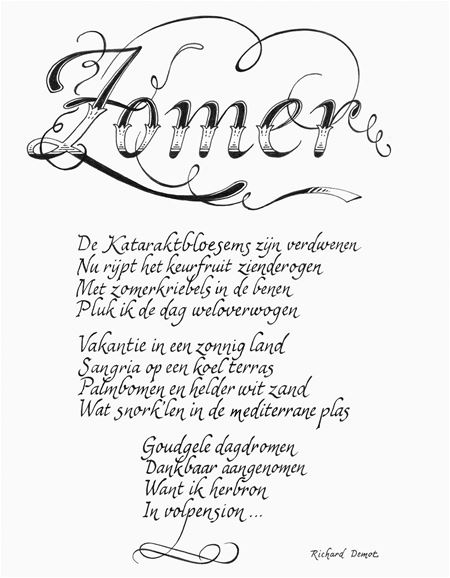 Zomer
De Kataraktbloesems zijn verdwenen
Nu rijpt het keurfruit zienderogen
Met zomerkriebels in de benen
Pluk ik de dag weloverwogen
Vakantie in een zonnig land
Sangria op een koel terras
Palmbomen en helder wit zand
Wat snork'len in de mediterrane plas
Goudgele dagdromen
Dankbaar aangenomen
Want ik herbron
In volpension ...
Richard Demot.